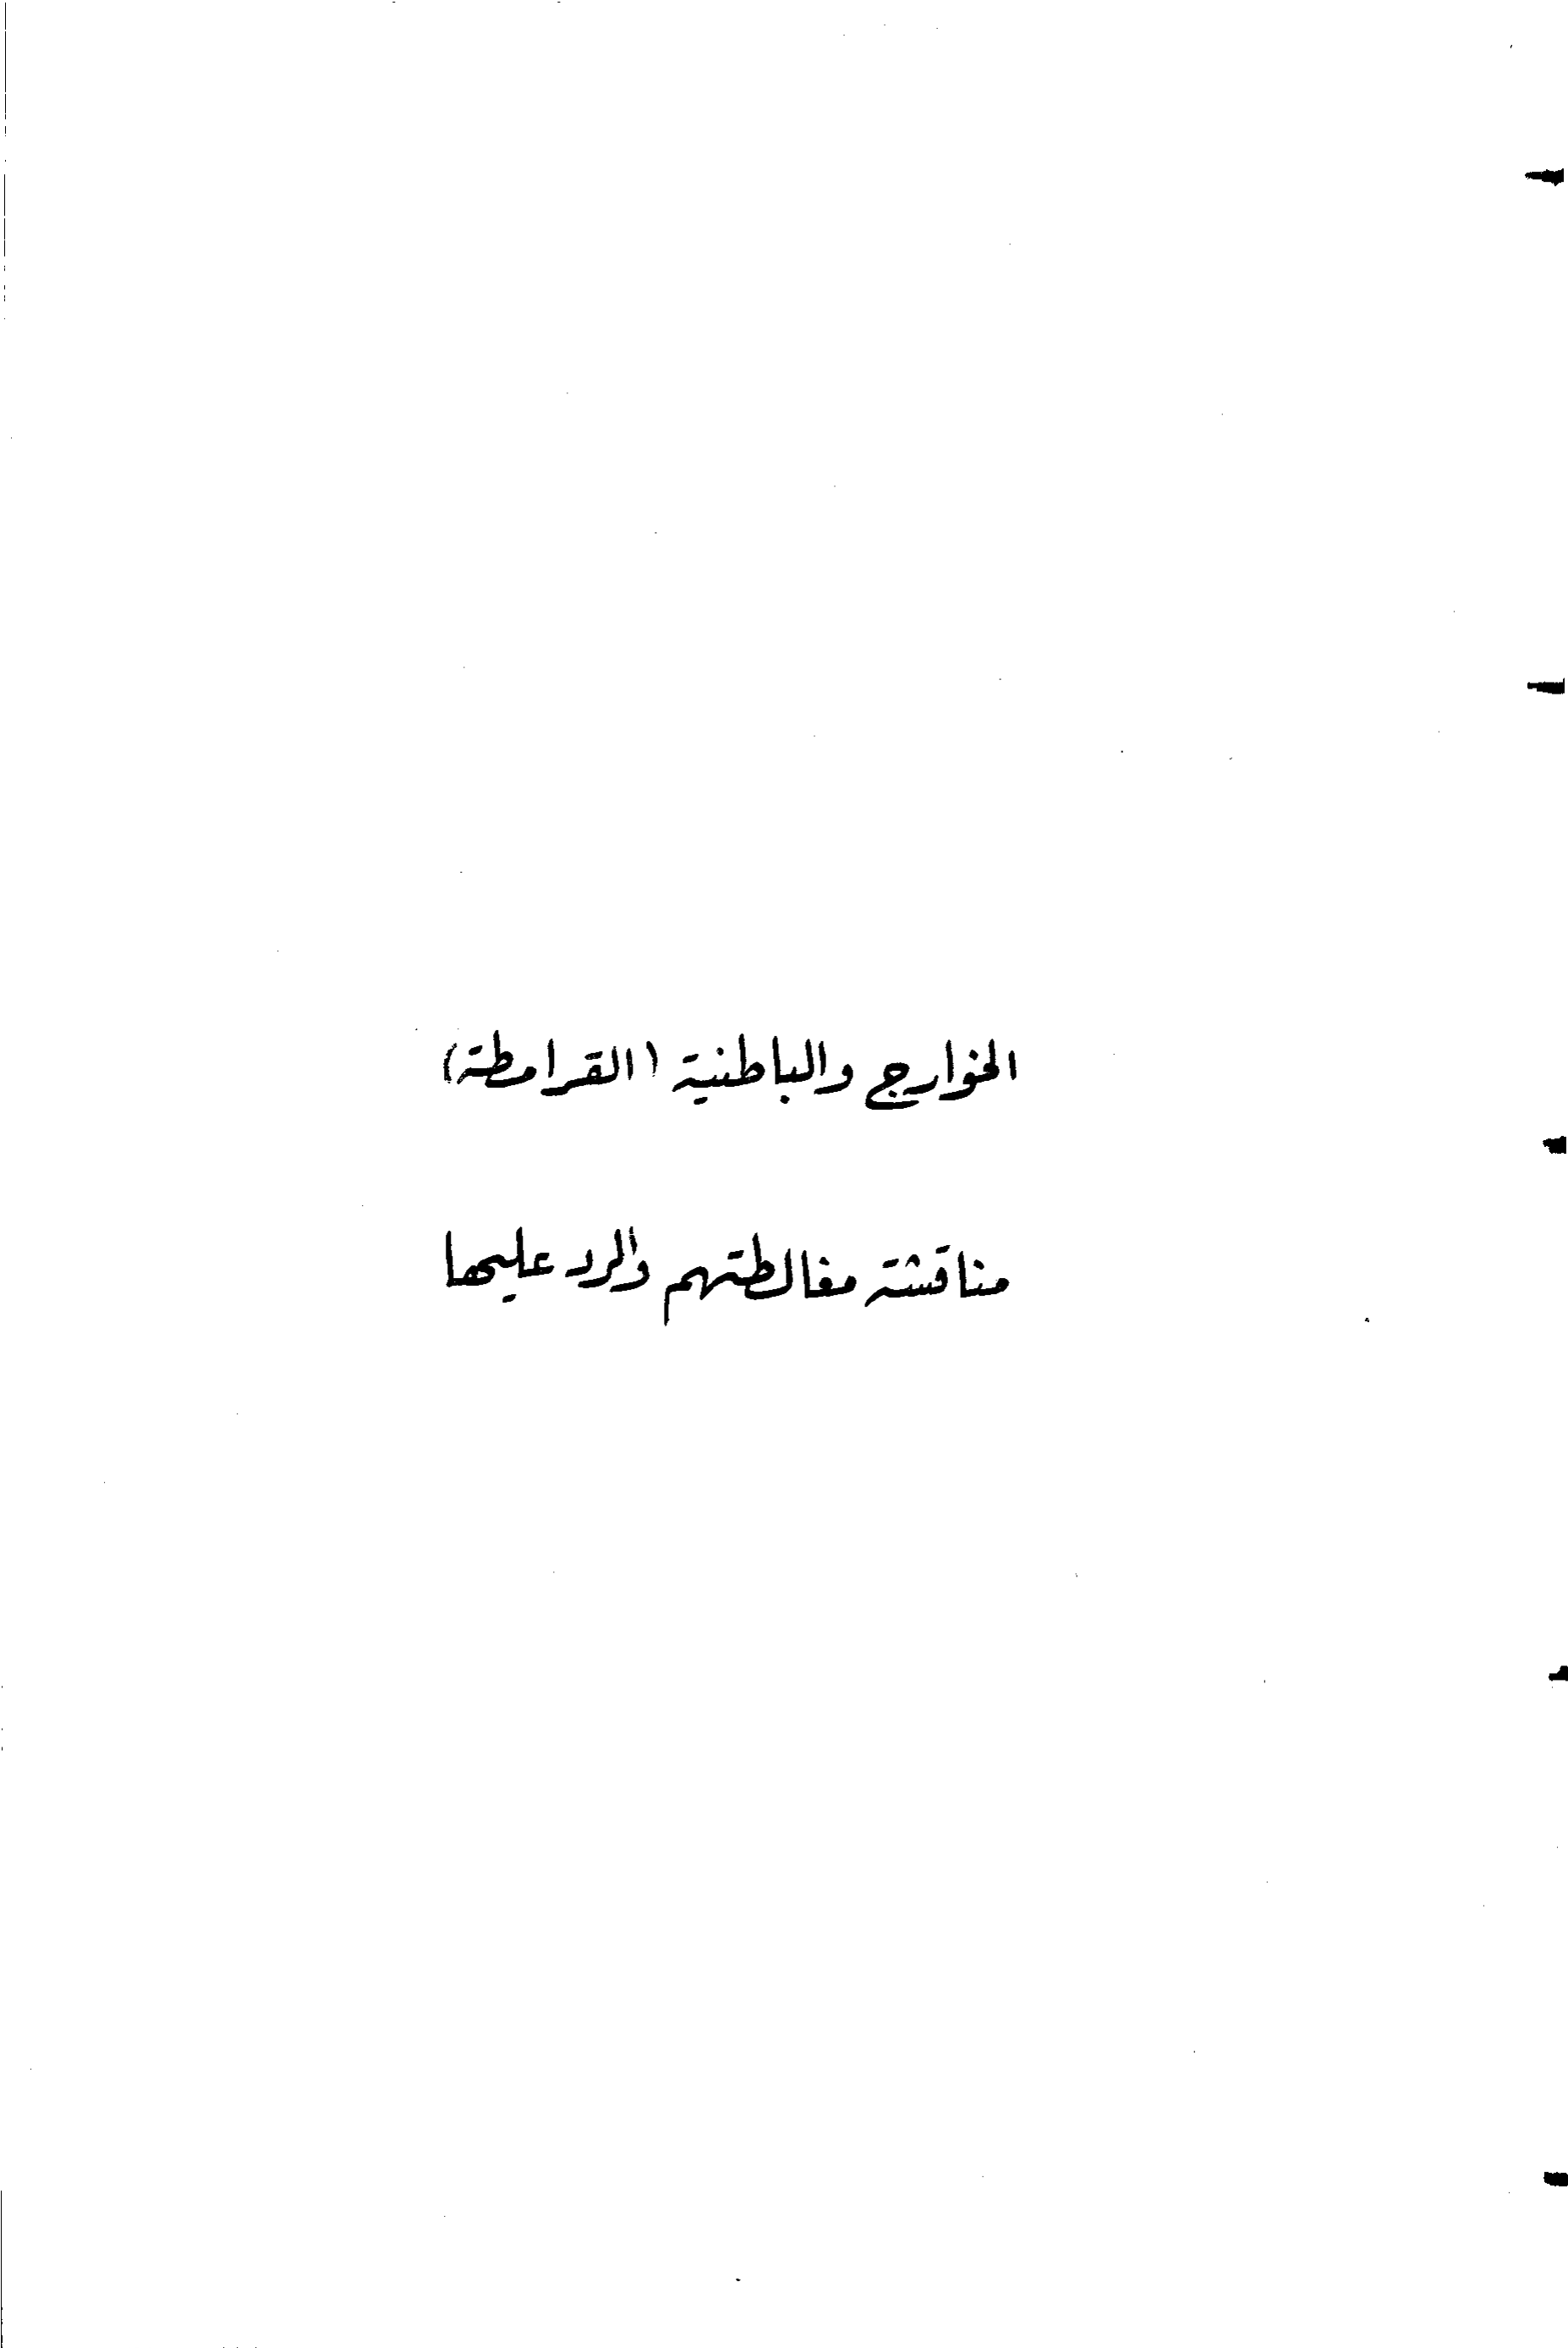 الخوارج والباطنية (القرامطة)
مناقشة مغالطتهم والرد عليها